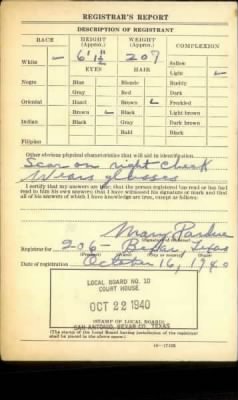 REGISTRAR'S REPORT
DESCRIPTION OF REGISTRANT
RACE HEIGHT (Approx.) WEIGHT (Approx.) COMPLEXION
White 6' 1½ 207 Sallow
EYES HAIR Light
Negro Blue Blonde Ruddy
Gray Red Dark
Oriental Hazel Brown Freckled
Brown Black Light brown
Indian Black Gray Dark brown
Bald Black
Filipino
Other obvious physical characteristics that will aid in identification
Scar on right cheek
Wears glasses
I certify that my answers are true; that the person registered has read or has had
read to him his own answers; that I have witnessed his signature or mark and that
all of his answers of which I have knowledge are true, except as follows:
Mary Pardue
Registrar for 206 Bexar, Texas
(Precinct) (City or county) (State)
Date of registration October 16, 1940
LOCAL BOARD NO. 10
COURT HOUSE
OCT 22 1940
(STAMP OF LOCAL BOARD)
SAN ANTONIO, BEXAR CO., TEXAS
(The stamp of the Local Board having jurisdiction of the registrant
shall be placed in the above space)